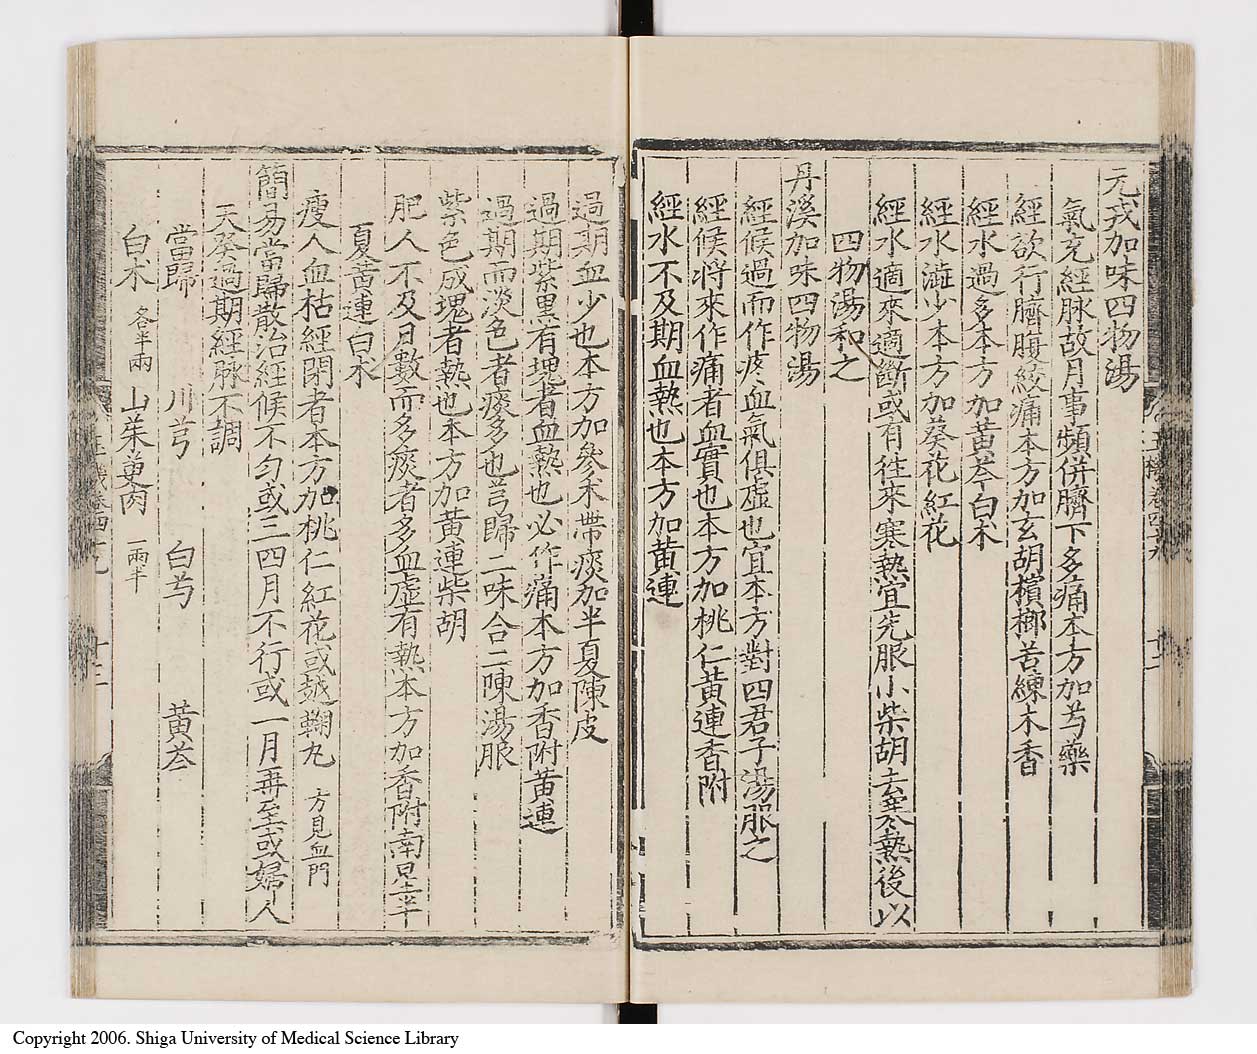 元戎加味四物湯
氣充經脉故月事頻併臍下多痛本方加芍藥
經欲行臍腹綾痛本方加玄胡檳榔苦練木香
經水過多本方加黃芩白朮
經水澁少本方加葵花紅花
經水適來適斷或有往來寒熱宜先服小柴胡去寒熱後以
四物湯和之
丹溪加味四物湯
經候過而作疼血氣俱虛也宜本方對四君子湯服之
經候將來作痛者血實也本方加桃仁黃連香附
經水不及期血熱也本方加黃連
過期血少也本方加參朮帶痰加半夏陳皮
過期紫黑有塊者血熱也必作痛本方加香附黃連
過期而淡色者痰多也芎歸二味合二陳湯服
紫色成塊者熱也本方加黃連柴胡
肥人不及日數而多痰者多血虛有熱本方加香附南星半
夏黃連白朮
瘦人血枯經閉者本方加桃仁紅花或越鞠丸 方見血門
簡易當歸散治經候不勻或三四月不行或一月再至或婦人
天癸過期經脉不調
當歸 川芎 白芍 黃芩
白朮 各半兩 山茱萸肉 一兩半
十三
Copyright 2006. Shiga University of Medical Science Library